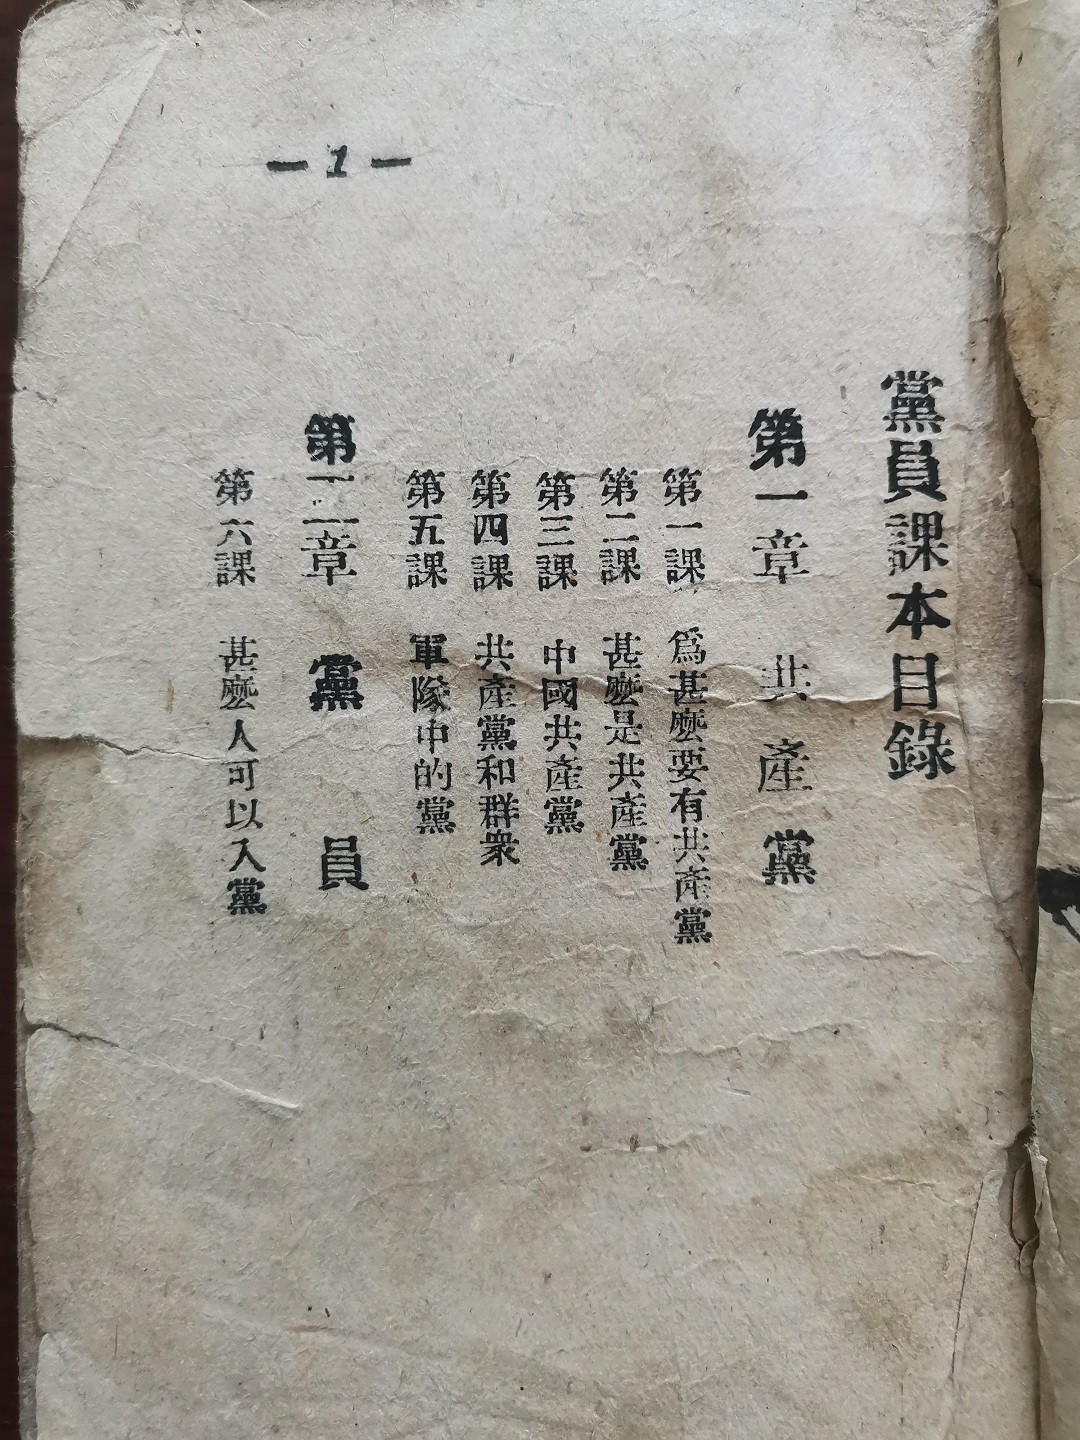 黨員課本目錄
第一章 共產黨
第一課 爲甚麽要有共產黨
第二課 甚麽是共產黨
第三課 中國共產黨
第四課 共產黨和群衆
第五課 軍隊中的黨
第二章 黨員
第六課 甚麽人可以入黨
— 1 —